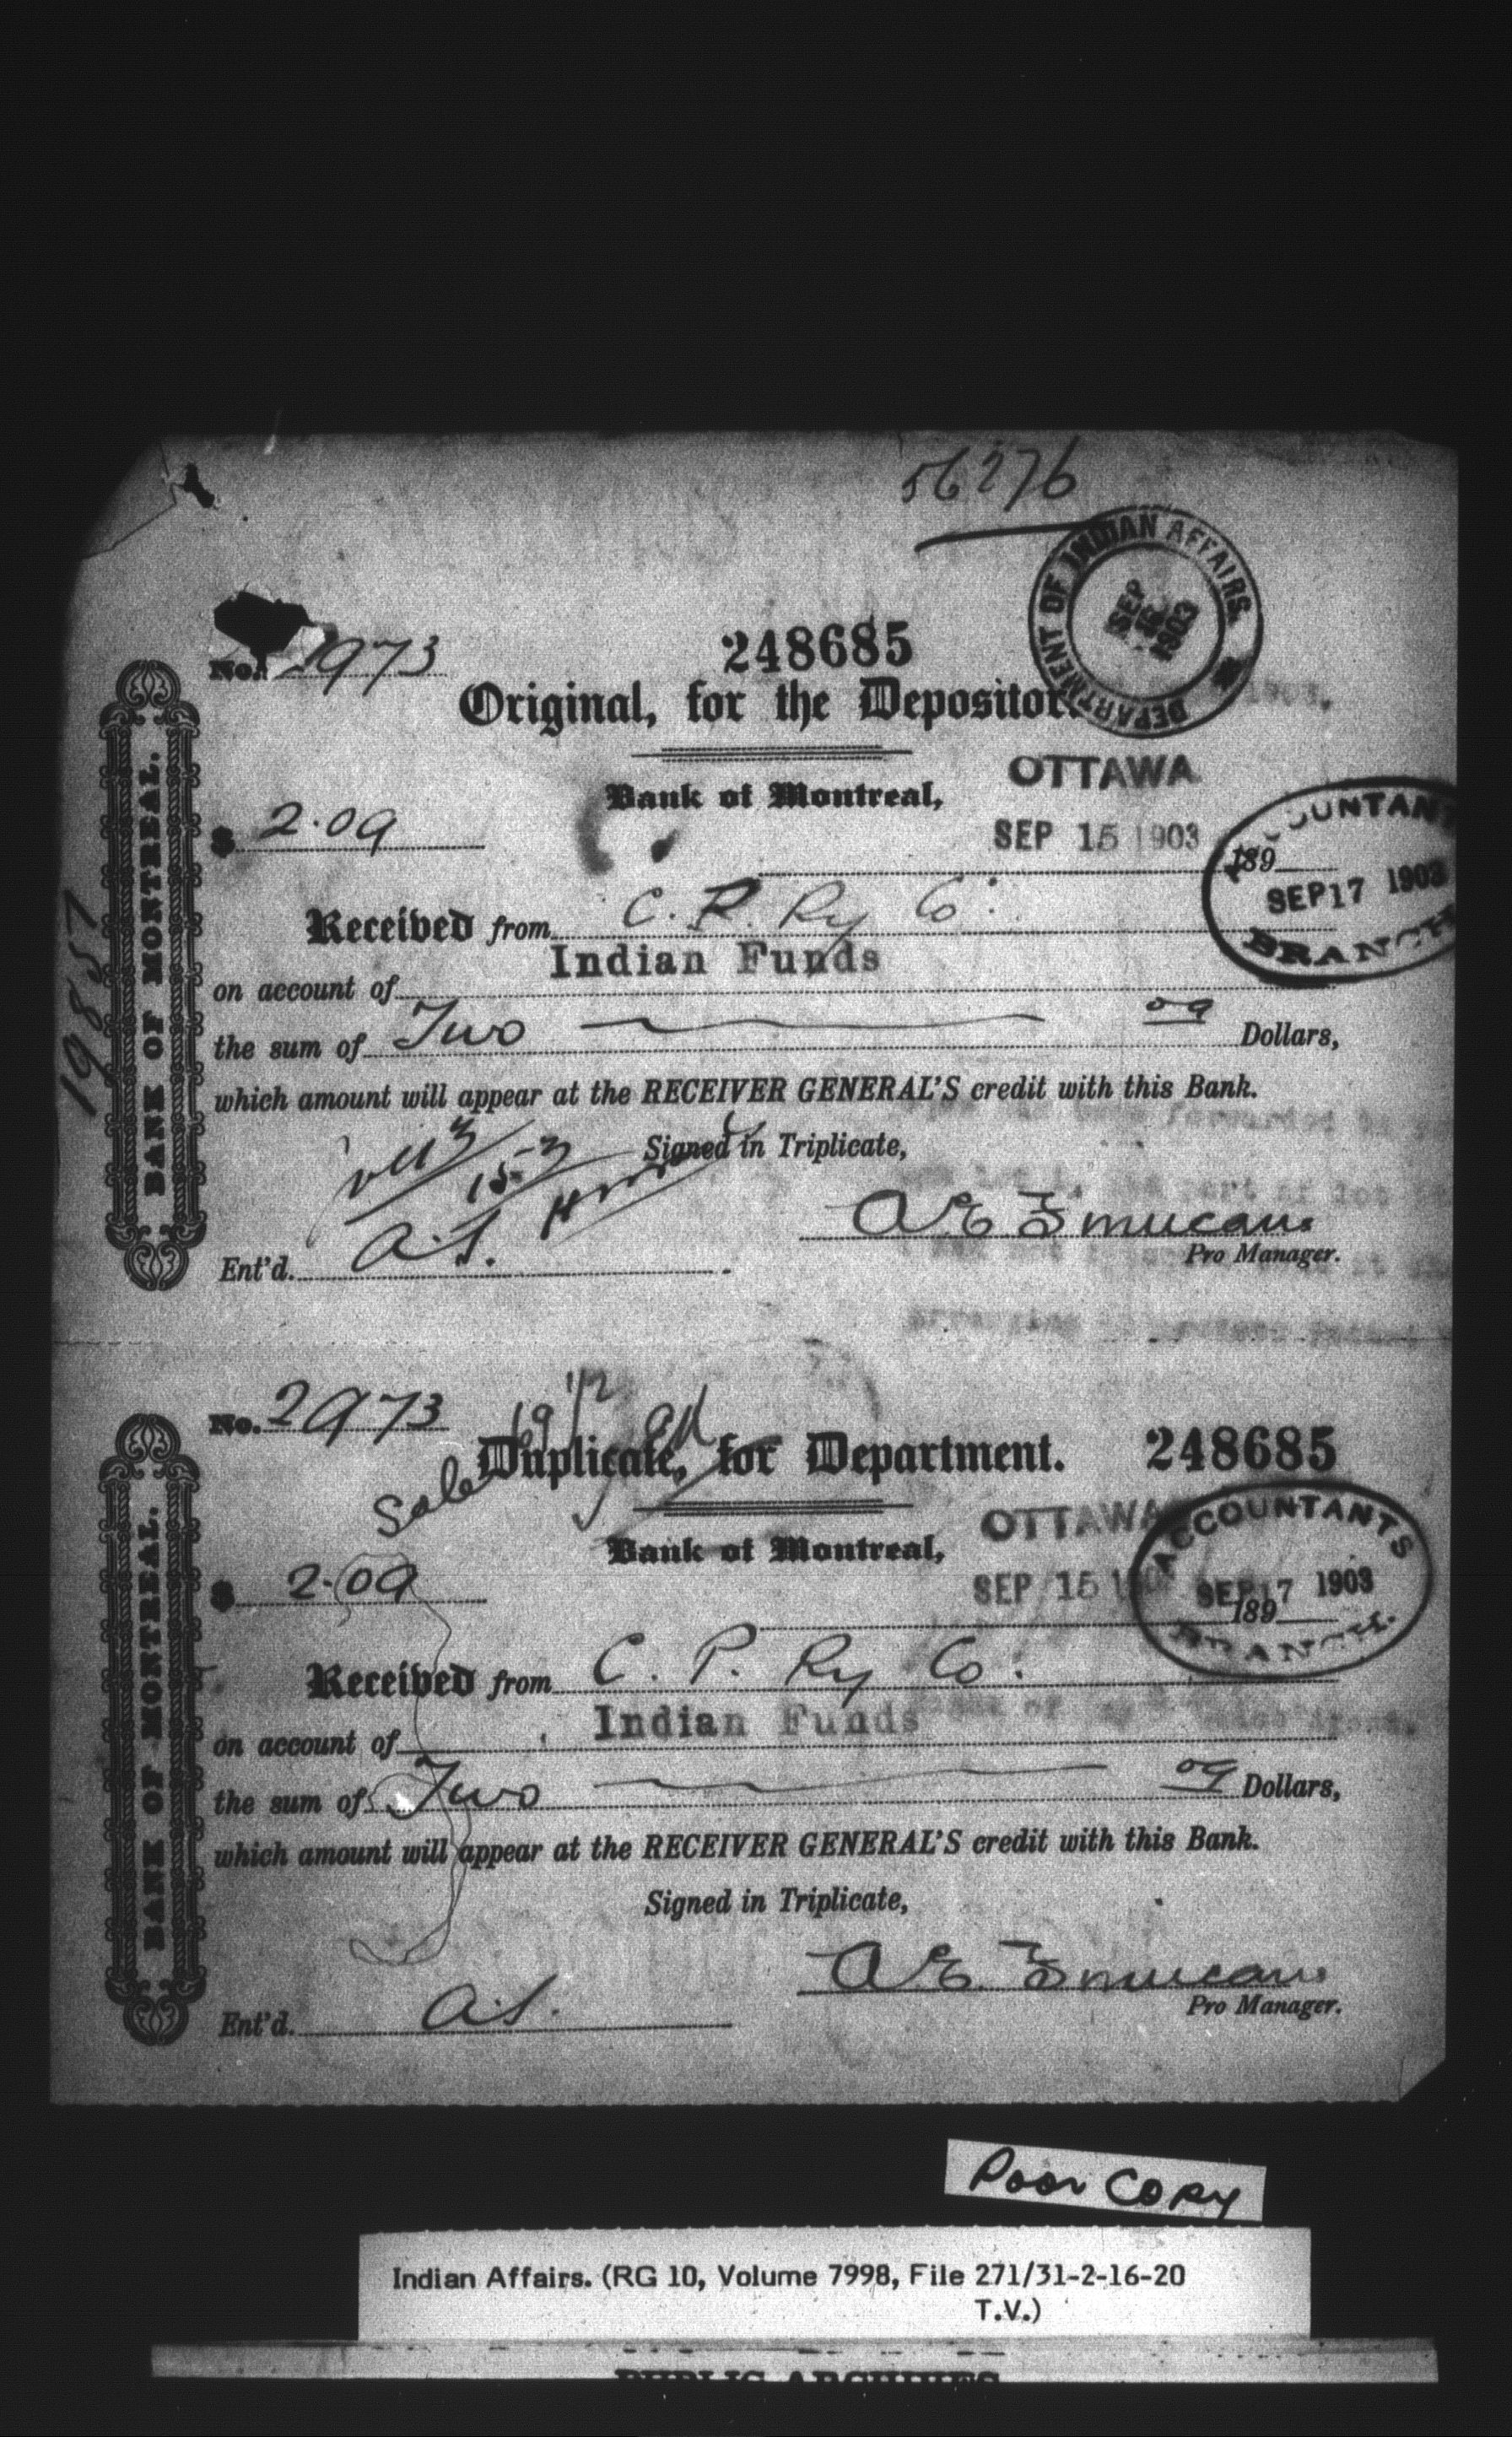 56276
DEPARTMENT OF INDIAN AFFAIRS.
SEP 16 1903
No. 2973
248685
Original, for the Depositor.
OTTAWA
Bank of Montreal,
SEP 15 1903
$ 2.09
189
ACCOUNTANTS
SEP 17 1903
BRANCH
Received from C. P. Ry Co.
Indian Funds
on account of
the sum of Two 09 Dollars,
which amount will appear at the RECEIVER GENERAL'S credit with this Bank.
forwarded to
Signed in Triplicate,
Pro Manager.
Ent'd. A.S.
BANK OF MONTREAL.
19857
No. 2973
Sale
Duplicate, for Department. 248685
OTTAWA
Bank of Montreal,
SEP 15 190
ACCOUNTANTS
SEP 17 1903
BRANCH.
$ 2.09
189
Received from C. P. Ry Co.
Indian Funds
on account of
the sum of Two 09 Dollars,
which amount will appear at the RECEIVER GENERAL'S credit with this Bank.
Signed in Triplicate,
Pro Manager.
Ent'd. A.S.
BANK OF MONTREAL.
Poor Copy
Indian Affairs. (RG 10, Volume 7998, File 271/31-2-16-20
T.V.)
PUBLIC ARCHIVES